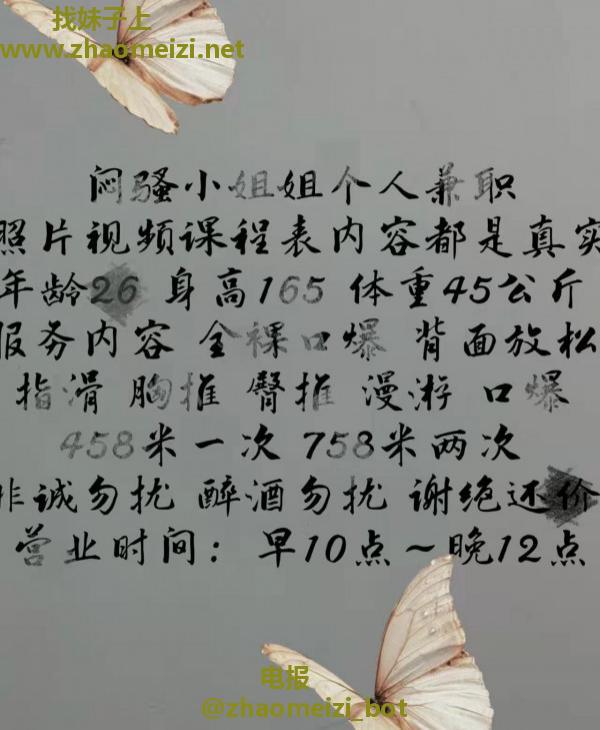 找妹子上
www.zhaomeizi.net
闷骚小姐姐个人兼职
照片视频课程表内容都是真实
年龄26 身高165 体重45公斤
服务内容 全裸口爆 背面放松
指滑 胸推 臀推 漫游 口爆
458米一次 758米两次
非诚勿扰 醉酒勿扰 谢绝还价
营业时间：早10点～晚12点
电报
@zhaomeizi_bot